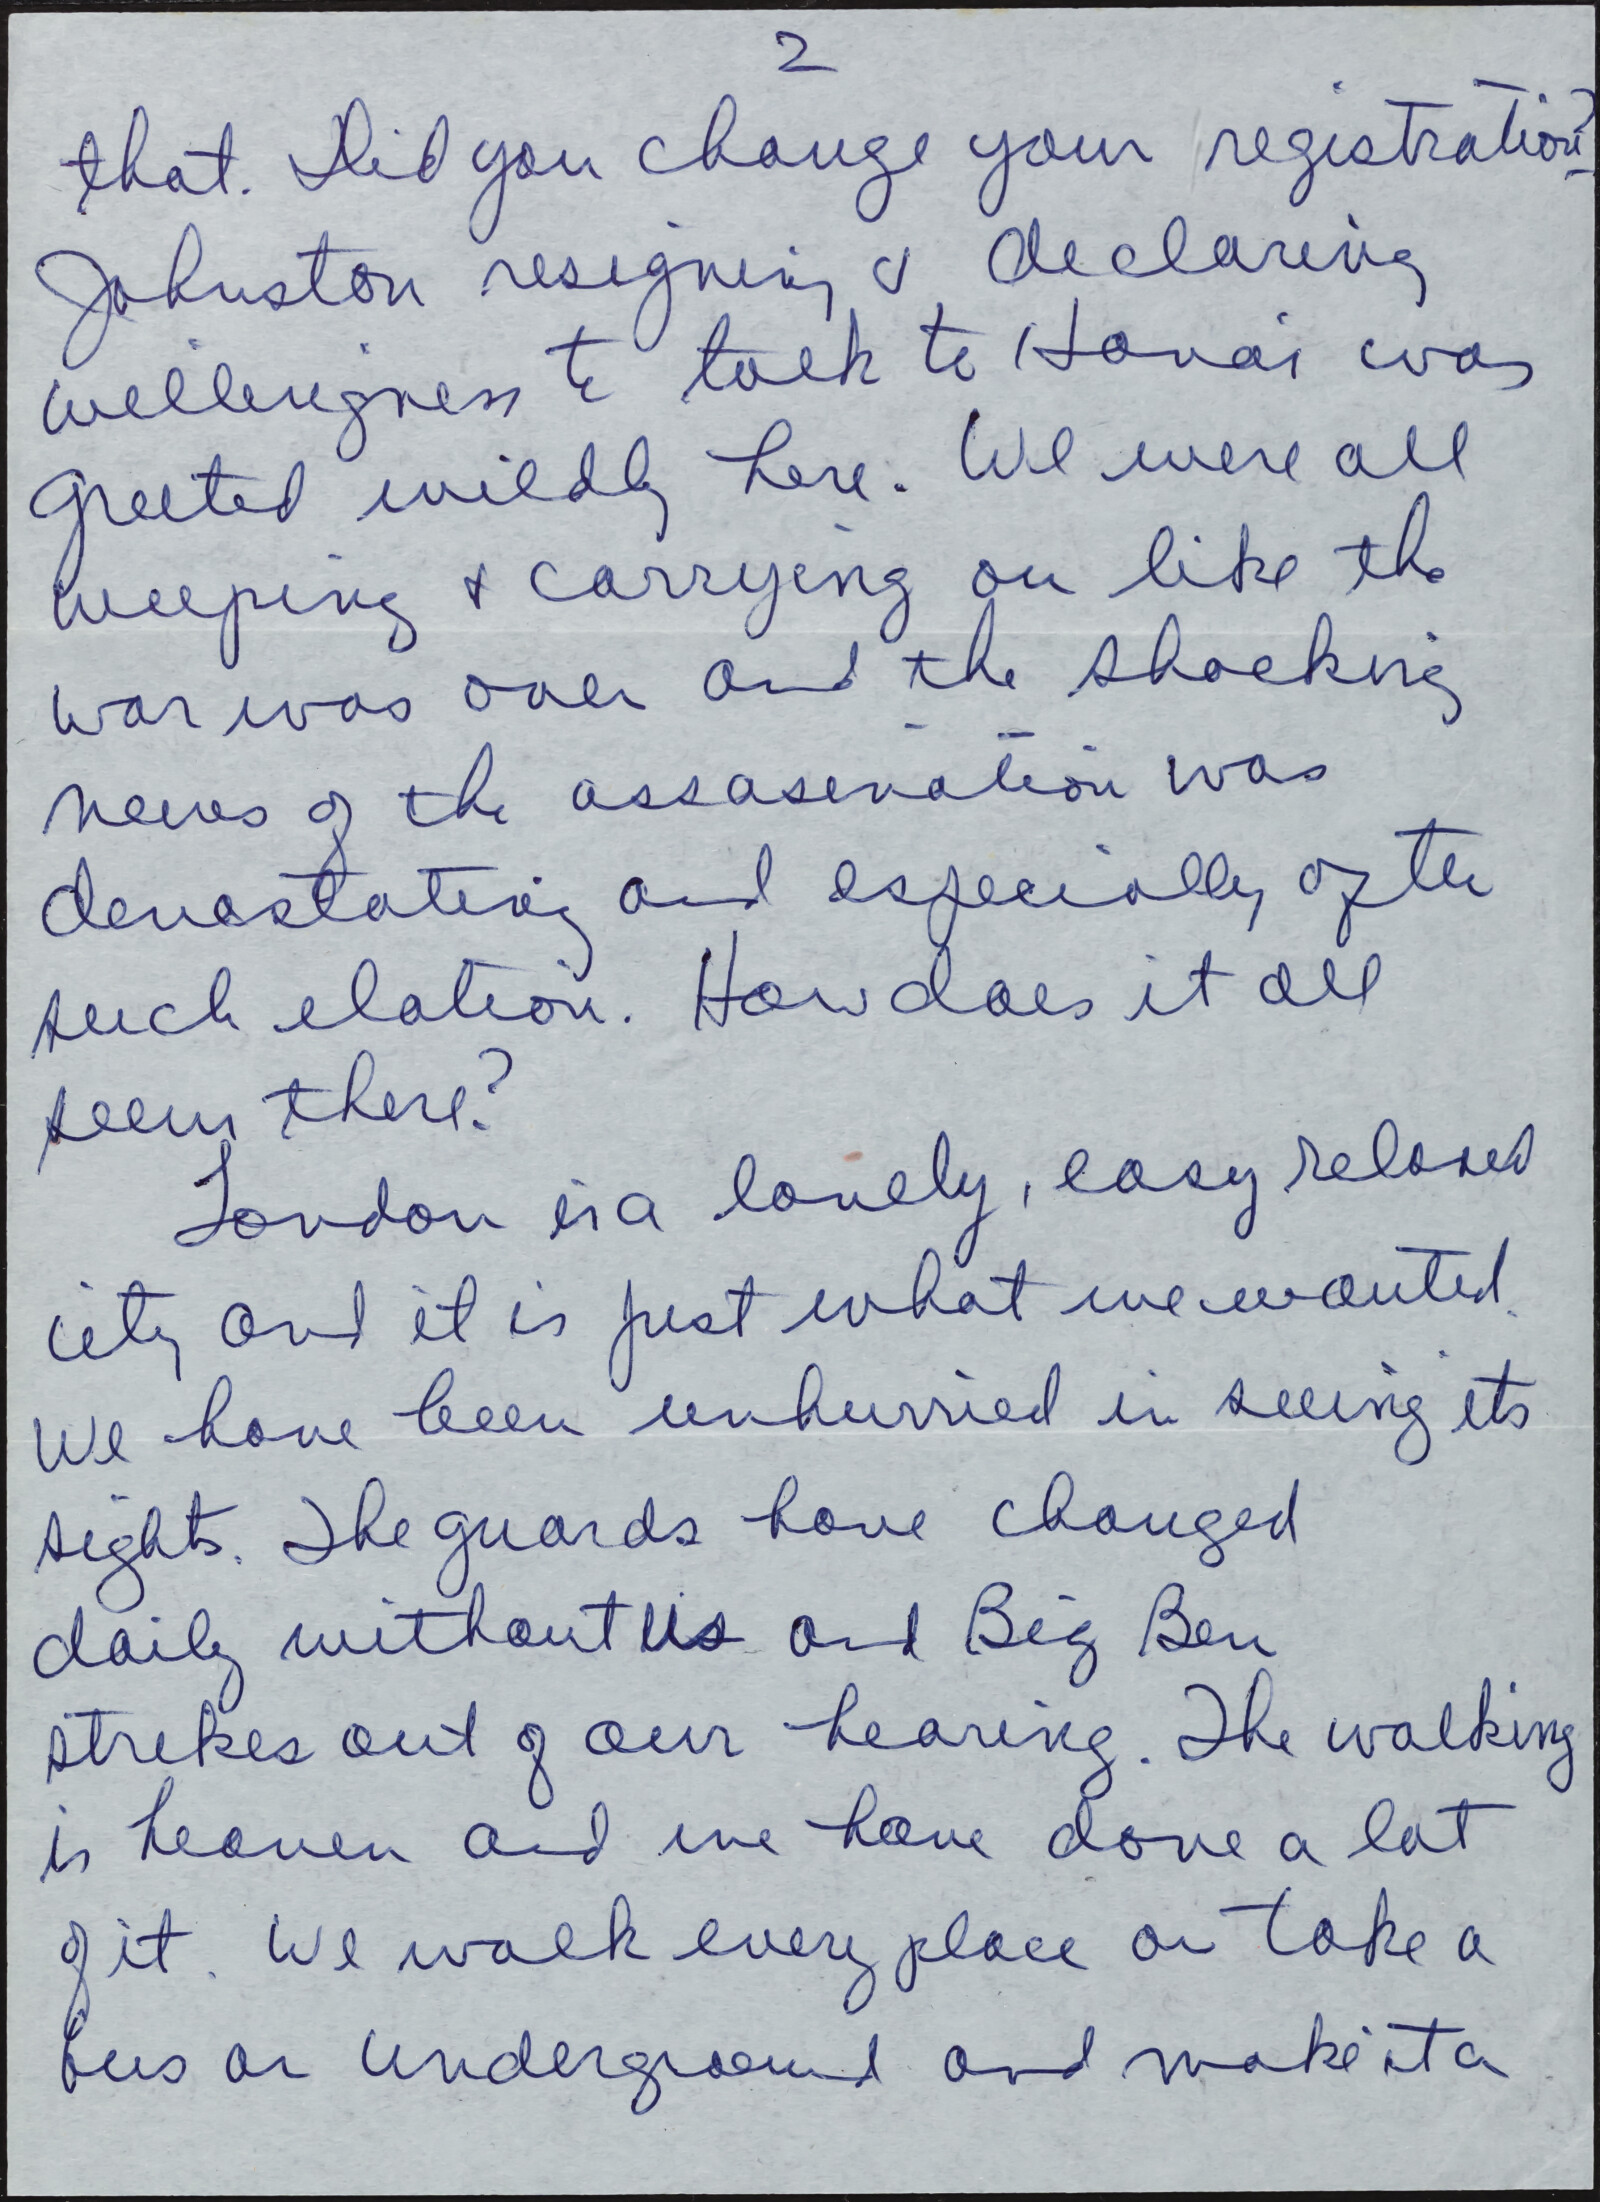 2
that. Did you change your registration?
Johnston resigning & declaring
willingness to talk to Hanoi was
greeted wildly here. We were all
weeping & carrying on like the
war was over and the shocking
news of the assasination was
devastating and especially after
such elation. How does it all
seem there?
London is a lovely, easy relaxed
city and it is just what we wanted.
We have been unhurried in seeing its
sights. The guards have changed
daily without us and Big Ben
strikes out of our hearing. The walking
is heaven and we have done a lot
of it. We walk every place or take a
bus or underground and make it a